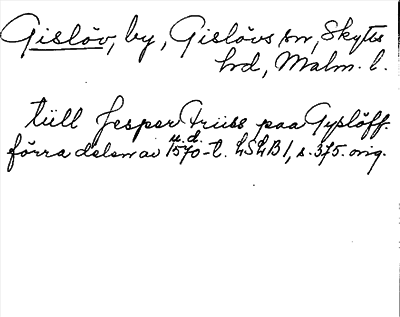 Gislöv, by, Gislövs sn, Skytts
hd, Malm. l.
tiill Jesper Friiss paa Gyslöff.
förra delen av u.d. 1570-t. LSLB1, s. 375. orig.